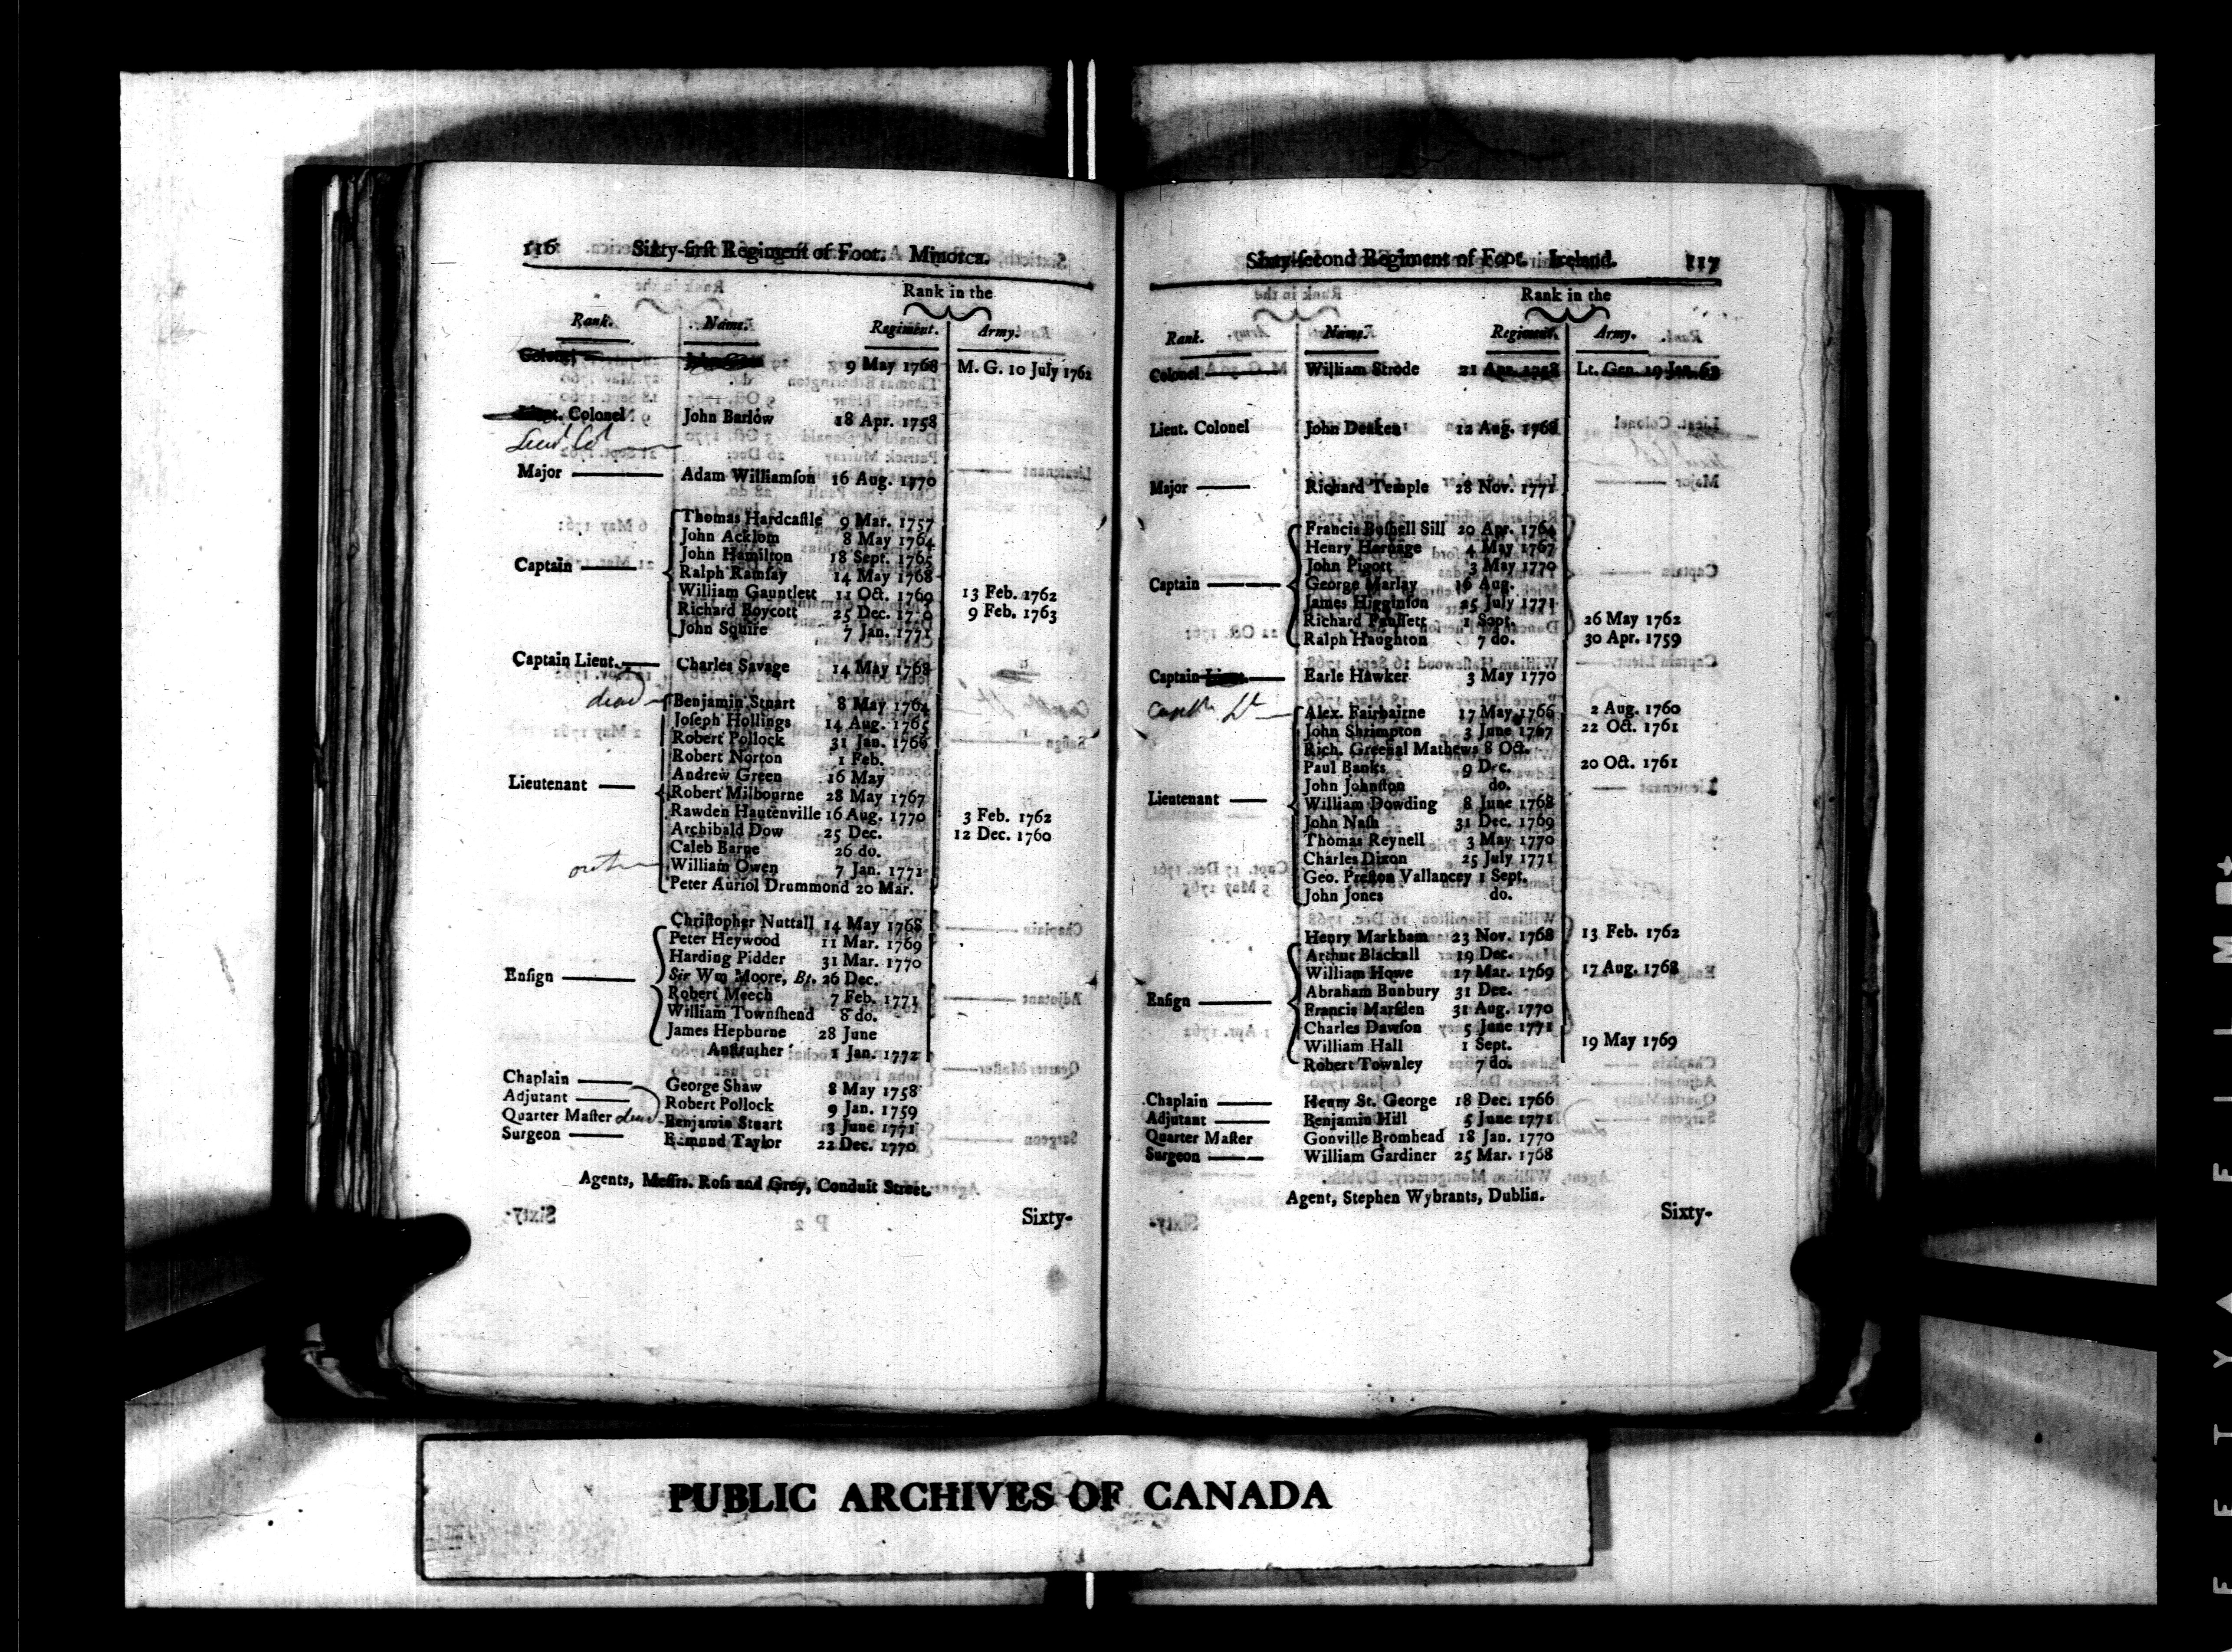 116 Sixty-first Regiment of Foot. Minorca.
Rank in the
Rank. Name. Regiment. Army.
Colonel 9 May 1768 M. G. 10 July 1762
Lieut. Colonel John Barlow 18 Apr. 1758
Lieut Col
Major Adam Williamſon 16 Aug. 1770
Thomas Hardcaſtle 9 Mar. 1757
John Acklom 8 May 1764
John Hamilton 18 Sept. 1765
Captain Ralph Ramſay 14 May 1768
William Gauntlett 11 Oct. 1769 13 Feb. 1762
Richard Boycott 25 Dec. 1770 9 Feb. 1763
John Squire 7 Jan. 1771
Captain Lieut. Charles Savage 14 May 1768
dead Benjamin Stuart 8 May 1764
Joſeph Hollings 14 Aug. 1765
Robert Pollock 31 Jan. 1766
Robert Norton 1 Feb.
Andrew Green 16 May
Lieutenant Robert Milbourne 28 May 1767
Rawden Hautenville 16 Aug. 1770 3 Feb. 1762
Archibald Dow 25 Dec. 12 Dec. 1760
Caleb Barne 26 do.
William Owen 7 Jan. 1771
Peter Auriol Drummond 20 Mar.
Chriſtopher Nuttall 14 May 1768
Peter Heywood 11 Mar. 1769
Harding Pidder 31 Mar. 1770
Enſign Sir Wm Moore, Bt. 26 Dec.
Robert Meech 7 Feb. 1771
William Townſhend 8 do.
James Hepburne 28 June
Anſtruther 1 Jan. 1772
Chaplain George Shaw 8 May 1758
Adjutant Robert Pollock 9 Jan. 1759
Quarter Maſter dead Benjamin Stuart 3 June 1771
Surgeon Edmund Taylor 22 Dec. 1770
Agents, Meſſrs. Roſs and Grey, Conduit Street.
Sixty-
Sixty-ſecond Regiment of Foot. Ireland. 117
Rank in the
Rank. Name. Regiment. Army.
Colonel William Strode 21 Apr. 1758 Lt. Gen. 19 Jan. 62
Lieut. Colonel John Deaken 12 Aug. 1768
Major Richard Temple 28 Nov. 1771
Francis Buſhell Sill 20 Apr. 1764
Henry Harnage 4 May 1767
John Pigott 3 May 1770
Captain George Marlay 16 Aug.
James Higginſon 25 July 1771
Richard 1 Sept. 26 May 1762
Ralph Haughton 7 do. 30 Apr. 1759
Captain Lieut. Earle Hawker 3 May 1770
Captn Lt Alex. Fairbairne 17 May 1766 2 Aug. 1760
John Shrimpton 3 June 1767 22 Oct. 1761
Rich. Greenal Mathews 8 Oct.
Paul Banks 9 Dec. 20 Oct. 1761
John Johnſton do.
Lieutenant William Dowding 8 June 1768
John Naſh 31 Dec. 1769
Thomas Reynell 3 May 1770
Charles Dixon 25 July 1771
Geo. Preſton Vallancey 1 Sept.
John Jones do.
Henry Markham 23 Nov. 1768 13 Feb. 1762
Arthur Blackall 19 Dec.
William Howe 17 Mar. 1769 17 Aug. 1768
Abraham Bunbury 31 Dec.
Enſign Francis Marſden 31 Aug. 1770
Charles Dawſon 5 June 1771
William Hall 1 Sept. 19 May 1769
Robert Townley 7 do.
Chaplain Henry St. George 18 Dec. 1766
Adjutant Benjamin Hill 5 June 1771
Quarter Maſter Gonville Bromhead 18 Jan. 1770
Surgeon William Gardiner 25 Mar. 1768
Agent, Stephen Wybrants, Dublin.
Sixty-
PUBLIC ARCHIVES OF CANADA